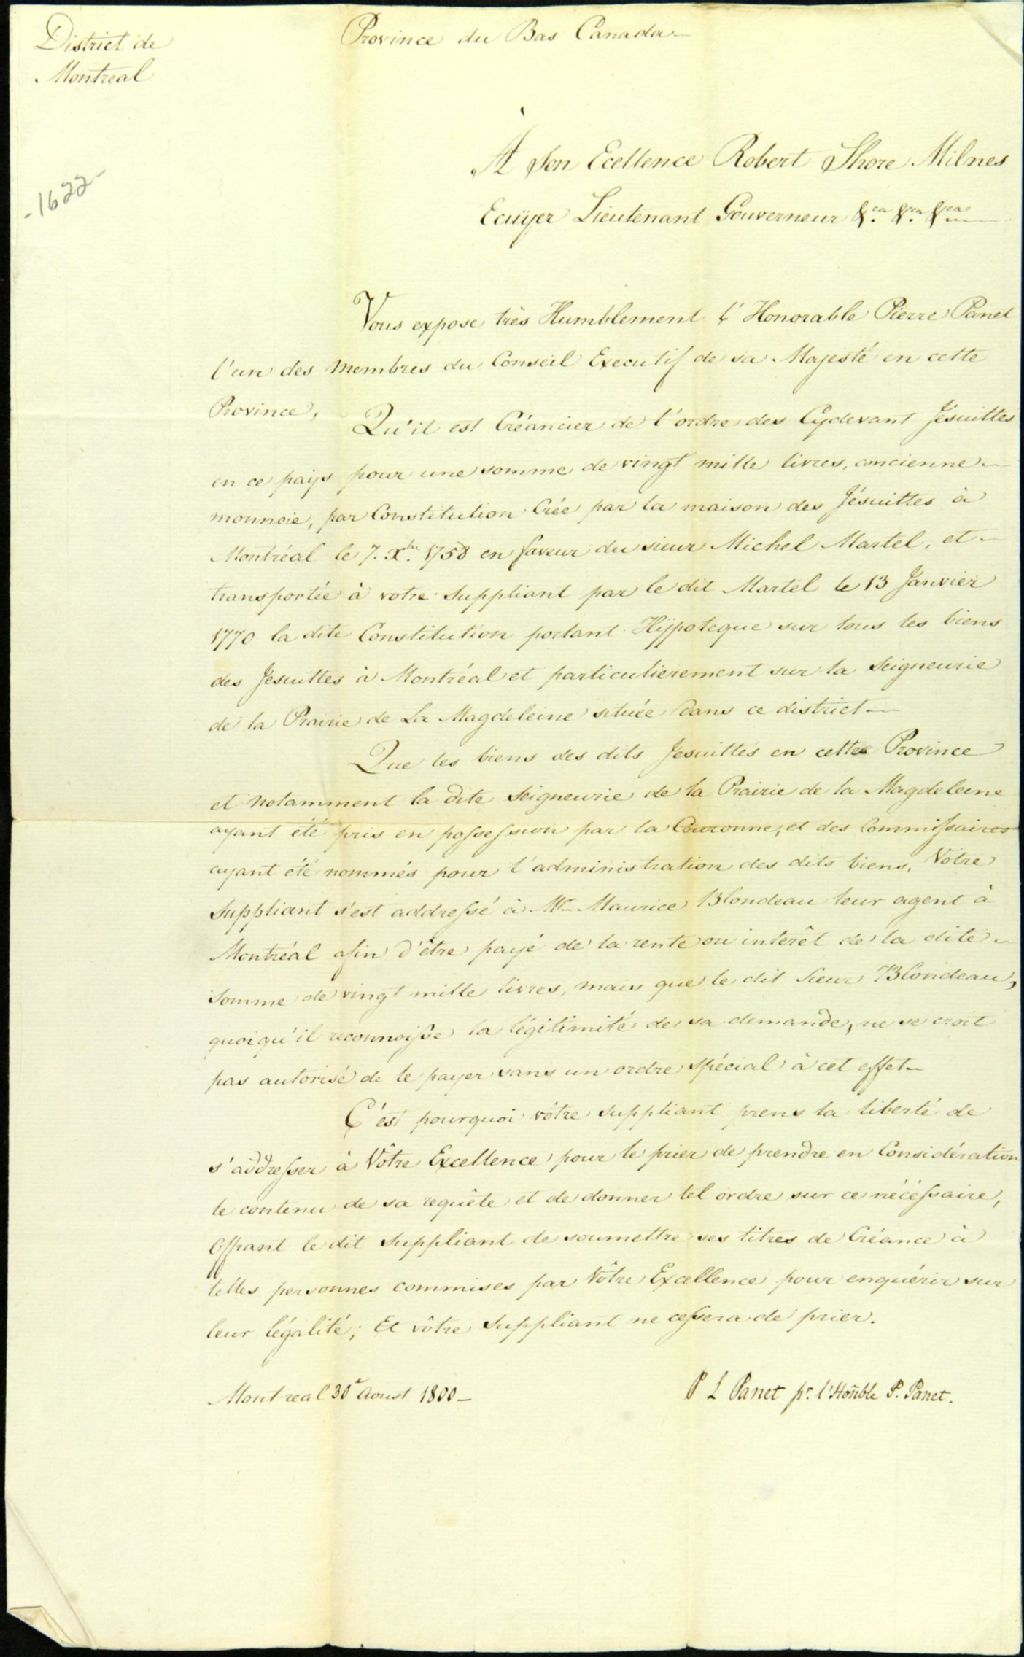 District de
Montreal
Province du Bas Canada
-1622-
À Son Ecellence Robert Shore Milnes
Ecuÿer Lieutenant Gouverneur &ca &ca &ca
Vous expose très Humblement l'Honorable Pierre Panet
l'un des membres du Conseil Executif de sa Majesté en cette
Province,
Qu'il est Créancier de l'ordre des Cydevant Jésuittes
en ce païs pour une somme de vingt mille livres, ancienne
monnoie, par Constitution Créé par la maison des Jésuittes à
Montréal le 7. Xbre 1758 en faveur du sieur Michel Martel, et
transportée à votre suppliant par le dit Martel le 13 Janvier
1770 la dite Constitution portant Hÿpoteque sur tous les biens
des Jésuittes à Montréal et particulierement sur la Seigneurie
de la Prairie de La Magdeleine située dans ce district
Que les biens des dits Jesuittes en cette Province
et notamment la dite Seigneurie de la Prairie de la Magdeleine
ayant été pris en possession par la Couronne, et des Commissaires
ayant été nommés pour l'administration des dits biens, Votre
Suppliant s'est addressé à Mr. Maurice Blondeau leur agent à
Montréal afin d'être payé de la rente ou interêt de la dite
somme de vingt mille livres, mais que le dit Sieur Blondeau,
quoiqu'il reconnoisse la légitimité de sa demande, ne se croit
pas autorisé de le payer sans un ordre spécial à cet effet
C'est pourquoi vôtre suppliant prens la liberté de
s'addresser à Vôtre Excellence pour le prier de prendre en Considération
le contenu de sa requête et de donner tel ordre sur ce nécéssaire,
Offrant le dit Suppliant de soumettre ses titres de Créance à
telles personnes commises par Vôtre Excellence pour enquérir sur
leur légalité; Et vôtre Suppliant ne cessera de prier.
Montreal 30e Aoust 1800
P L Panet pr. l'Honble P. Panet.